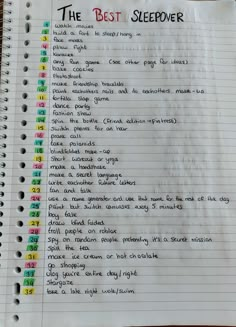 The Best Sleepover
1 watch movies
2 build a fort to sleep/hang in
3 face masks
4 pillow fight
5 karaoke
6 any fun game (see other page for ideas)
7 bake cookies
8 photoshoot
9 make friendship bracelets
10 paint eachothers nails and do eachothers make-up
11 tortilla slap game
12 dance party
13 fashion show
14 spin the bottle (friend edition)
15 switch phones for an hour
16 prank call
17 take polaroids
18 blindfolded make-up
19 short workout or yoga
20 make a handshake
21 make a secret language
22 write eachother future letters
23 tan and talk
24 use a name generator and use that name for the rest of the day
25 paint but switch canvases every 5 minutes
26 buy fake
27 draw blind folded
28 troll people on roblox
29 spy on random people pretending it's a secret mission
30 spill the tea
31 make ice cream or hot chocolate
32 go shopping
33 vlog you're entire day/night
34 Stargaze
35 take a late night walk/swim